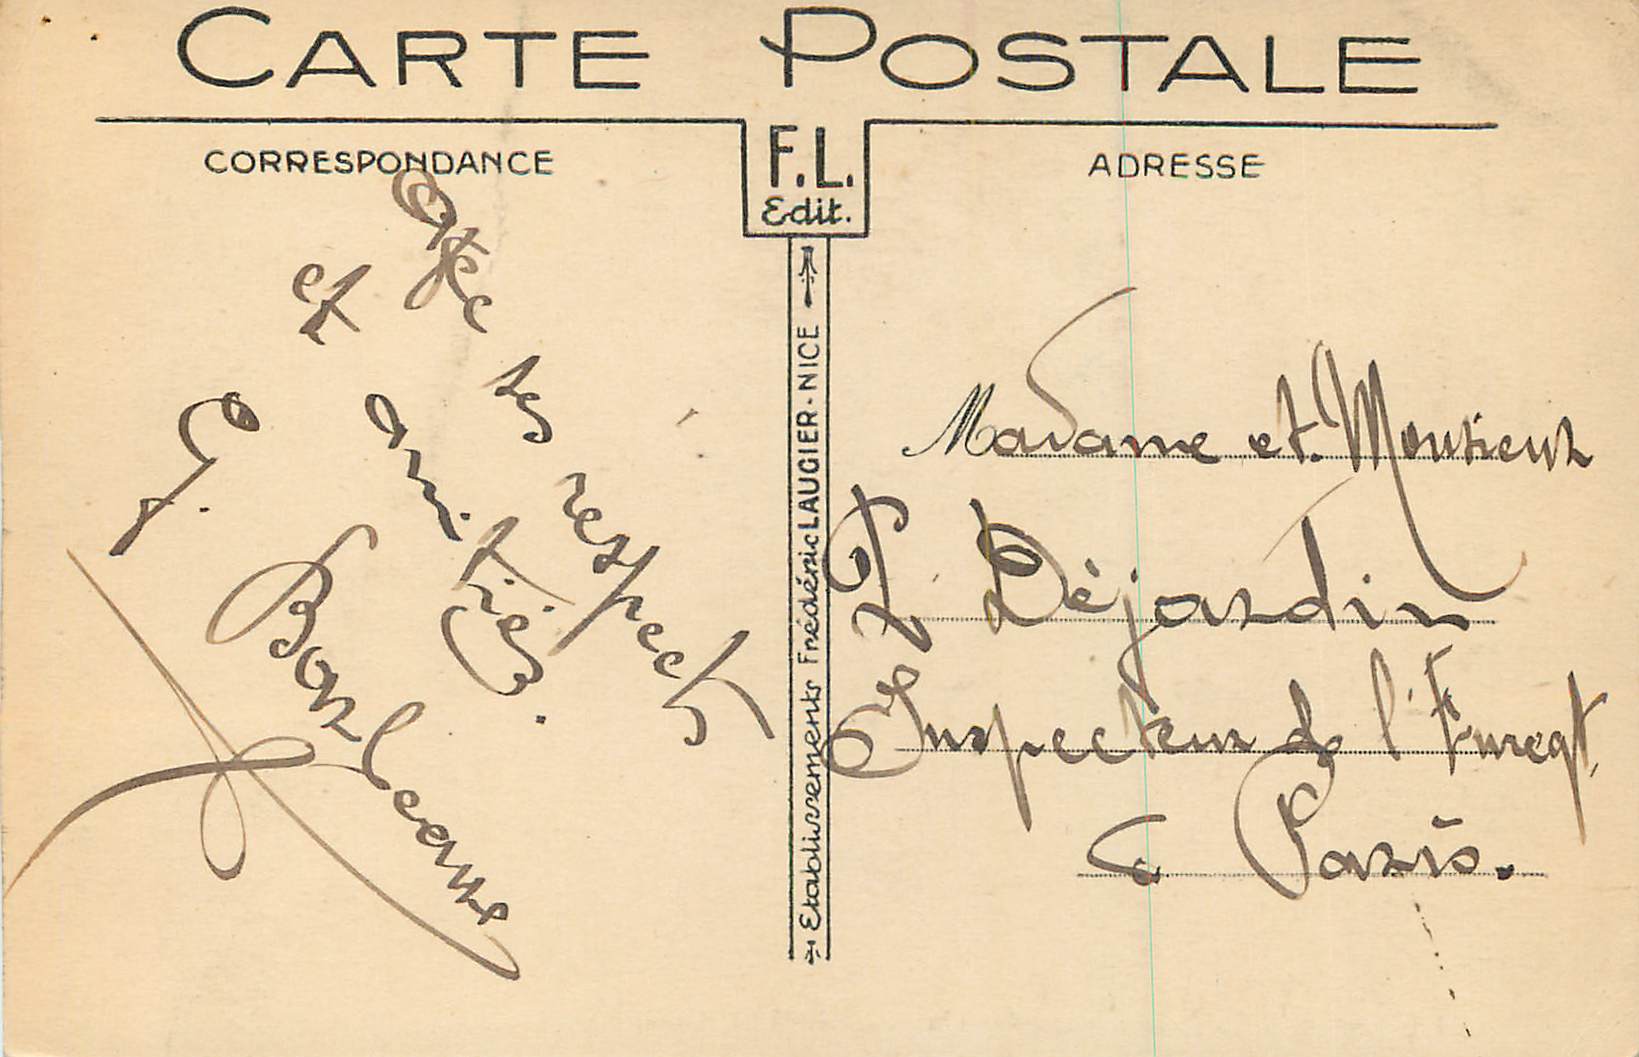 CARTE POSTALE
CORRESPONDANCE
F.L.
Edit.
ADRESSE
Etablissements Frédéric LAUGIER - NICE
respects
et amitiés.
G. Bonleaux
Madame et Monsieur
Déjardin
Inspecteur de l'Enregt,
à Paris.